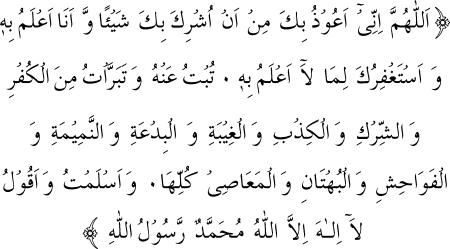 ﴿اَللّٰهُمَّ اِنِّیْۤ اَعُوْذُ بِكَ مِنْ اَنْ اُشْرِكَ بِكَ شَیْـًٔا وَّ اَنَا اَعْلَمُ بِهٖ
وَ اَسْتَغْفِرُكَ لِمَا لَاۤ اَعْلَمُ بِهٖ ۰ تُبْتُ عَنْهُ وَ تَبَرَّاْتُ مِنَ الْكُفْرِ
وَ الشِّرْكِ وَ الْكِذْبِ وَ الْغِیْبَةِ وَ الْبِدْعَةِ وَ النَّمِیْمَةِ وَ
الْفَوَاحِشِ وَ الْبُهْتَانِ وَ الْمَعَاصِیْ كُلِّهَا۰ وَ اَسْلَمْتُ وَ اَقُوْلُ
لَاۤ اِلٰهَ اِلَّا اللّٰهُ مُحَمَّدٌ رَّسُوْلُ اللّٰهِ ﴾